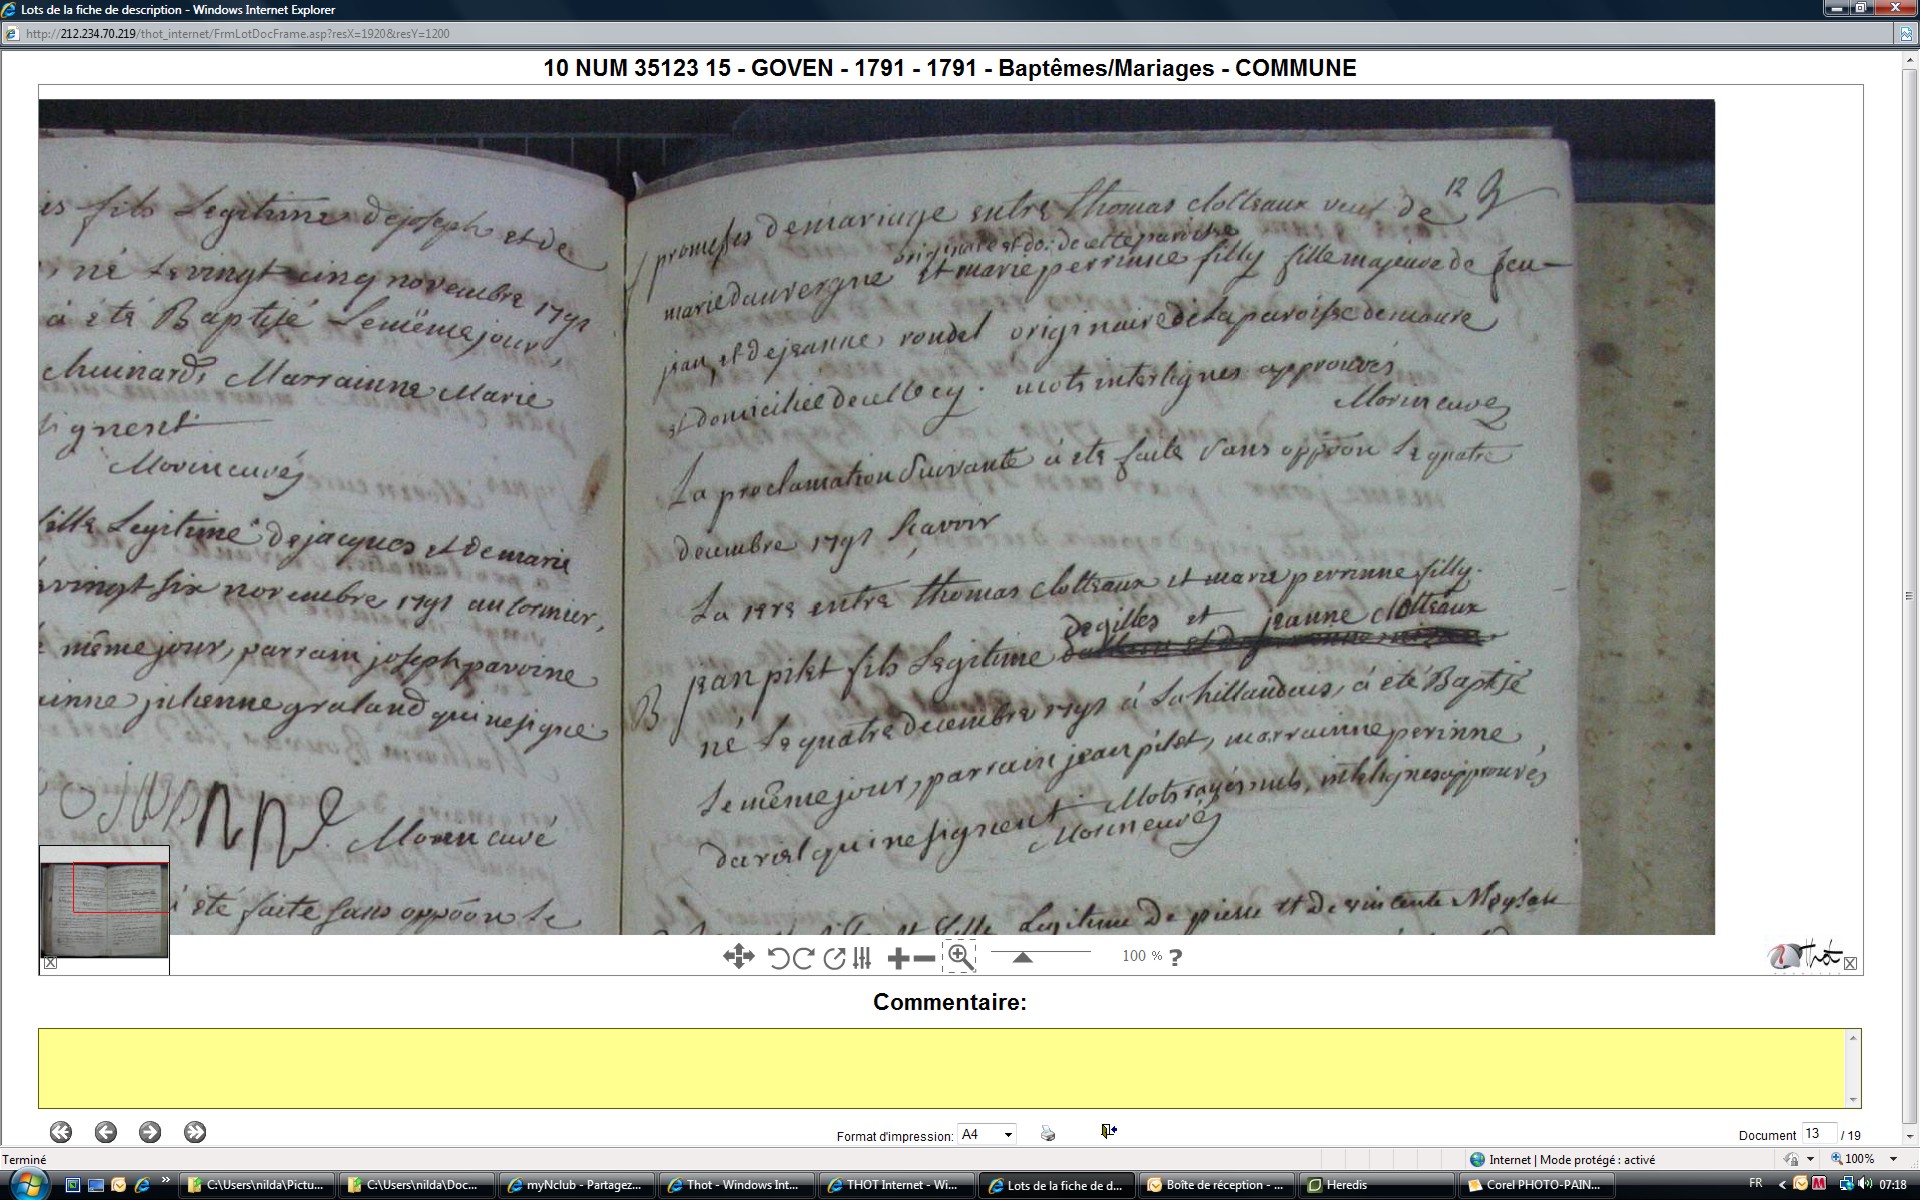 Lots de la fiche de description - Windows Internet Explorer
http://212.234.70.219/thot_internet/FrmLotDocFrame.asp?resX=1920&resY=1200
10 NUM 35123 15 - GOVEN - 1791 - 1791 - Baptêmes/Mariages - COMMUNE
is fils Legitime de joseph et de
né Le vingt cinq novembre 1791
à été Baptisé Le même jour,
chuinard, Marrainne Marie
signent
Morin curé
fille Legitime de jacques et de marie
vingt six novembre 1791 au cormier,
même jour, parrain joseph pavoine
julienne graland qui ne signe
Morin curé
à été faite sans oppôon Le
12
promesses de mariage entre thomas clotteaux veuf de
originaire et do: de cette paroisse
marie dauvergne et marie perrinne filly fille majeure de feu
jean, et de jeanne rondel originaire de La paroisse de maure
et domiciliée de celle cy. mots interlignes approuvés
Morin curé
La proclamation Suivante à été faite Sans oppôon Le quatre
decembre 1791 Sçavoir
La 1ere entre thomas clotteaux et marie perrinne filly.
de gilles et jeanne clotteaux
B
jean pilet fils Legitime
né Le quatre decembre 1791 à La hillaudais, à été Baptisé
Le même jour, parrain jean pilet, marrainne perinne
qui ne signent Mots rayés nuls, interlignes approuvés
Morin curé
fille Legitime de pierre et de vincente
100 % ?
Thot
Commentaire:
Format d'impression: A4
Document 13 / 19
Terminé
Internet | Mode protégé : activé
100%
C:\Users\nilda\Pictu...
C:\Users\nilda\Doc...
myNclub - Partagez...
Thot - Windows Int...
THOT Internet - Wi...
Lots de la fiche de d...
Boîte de réception - ...
Heredis
Corel PHOTO-PAIN...
FR
07:18